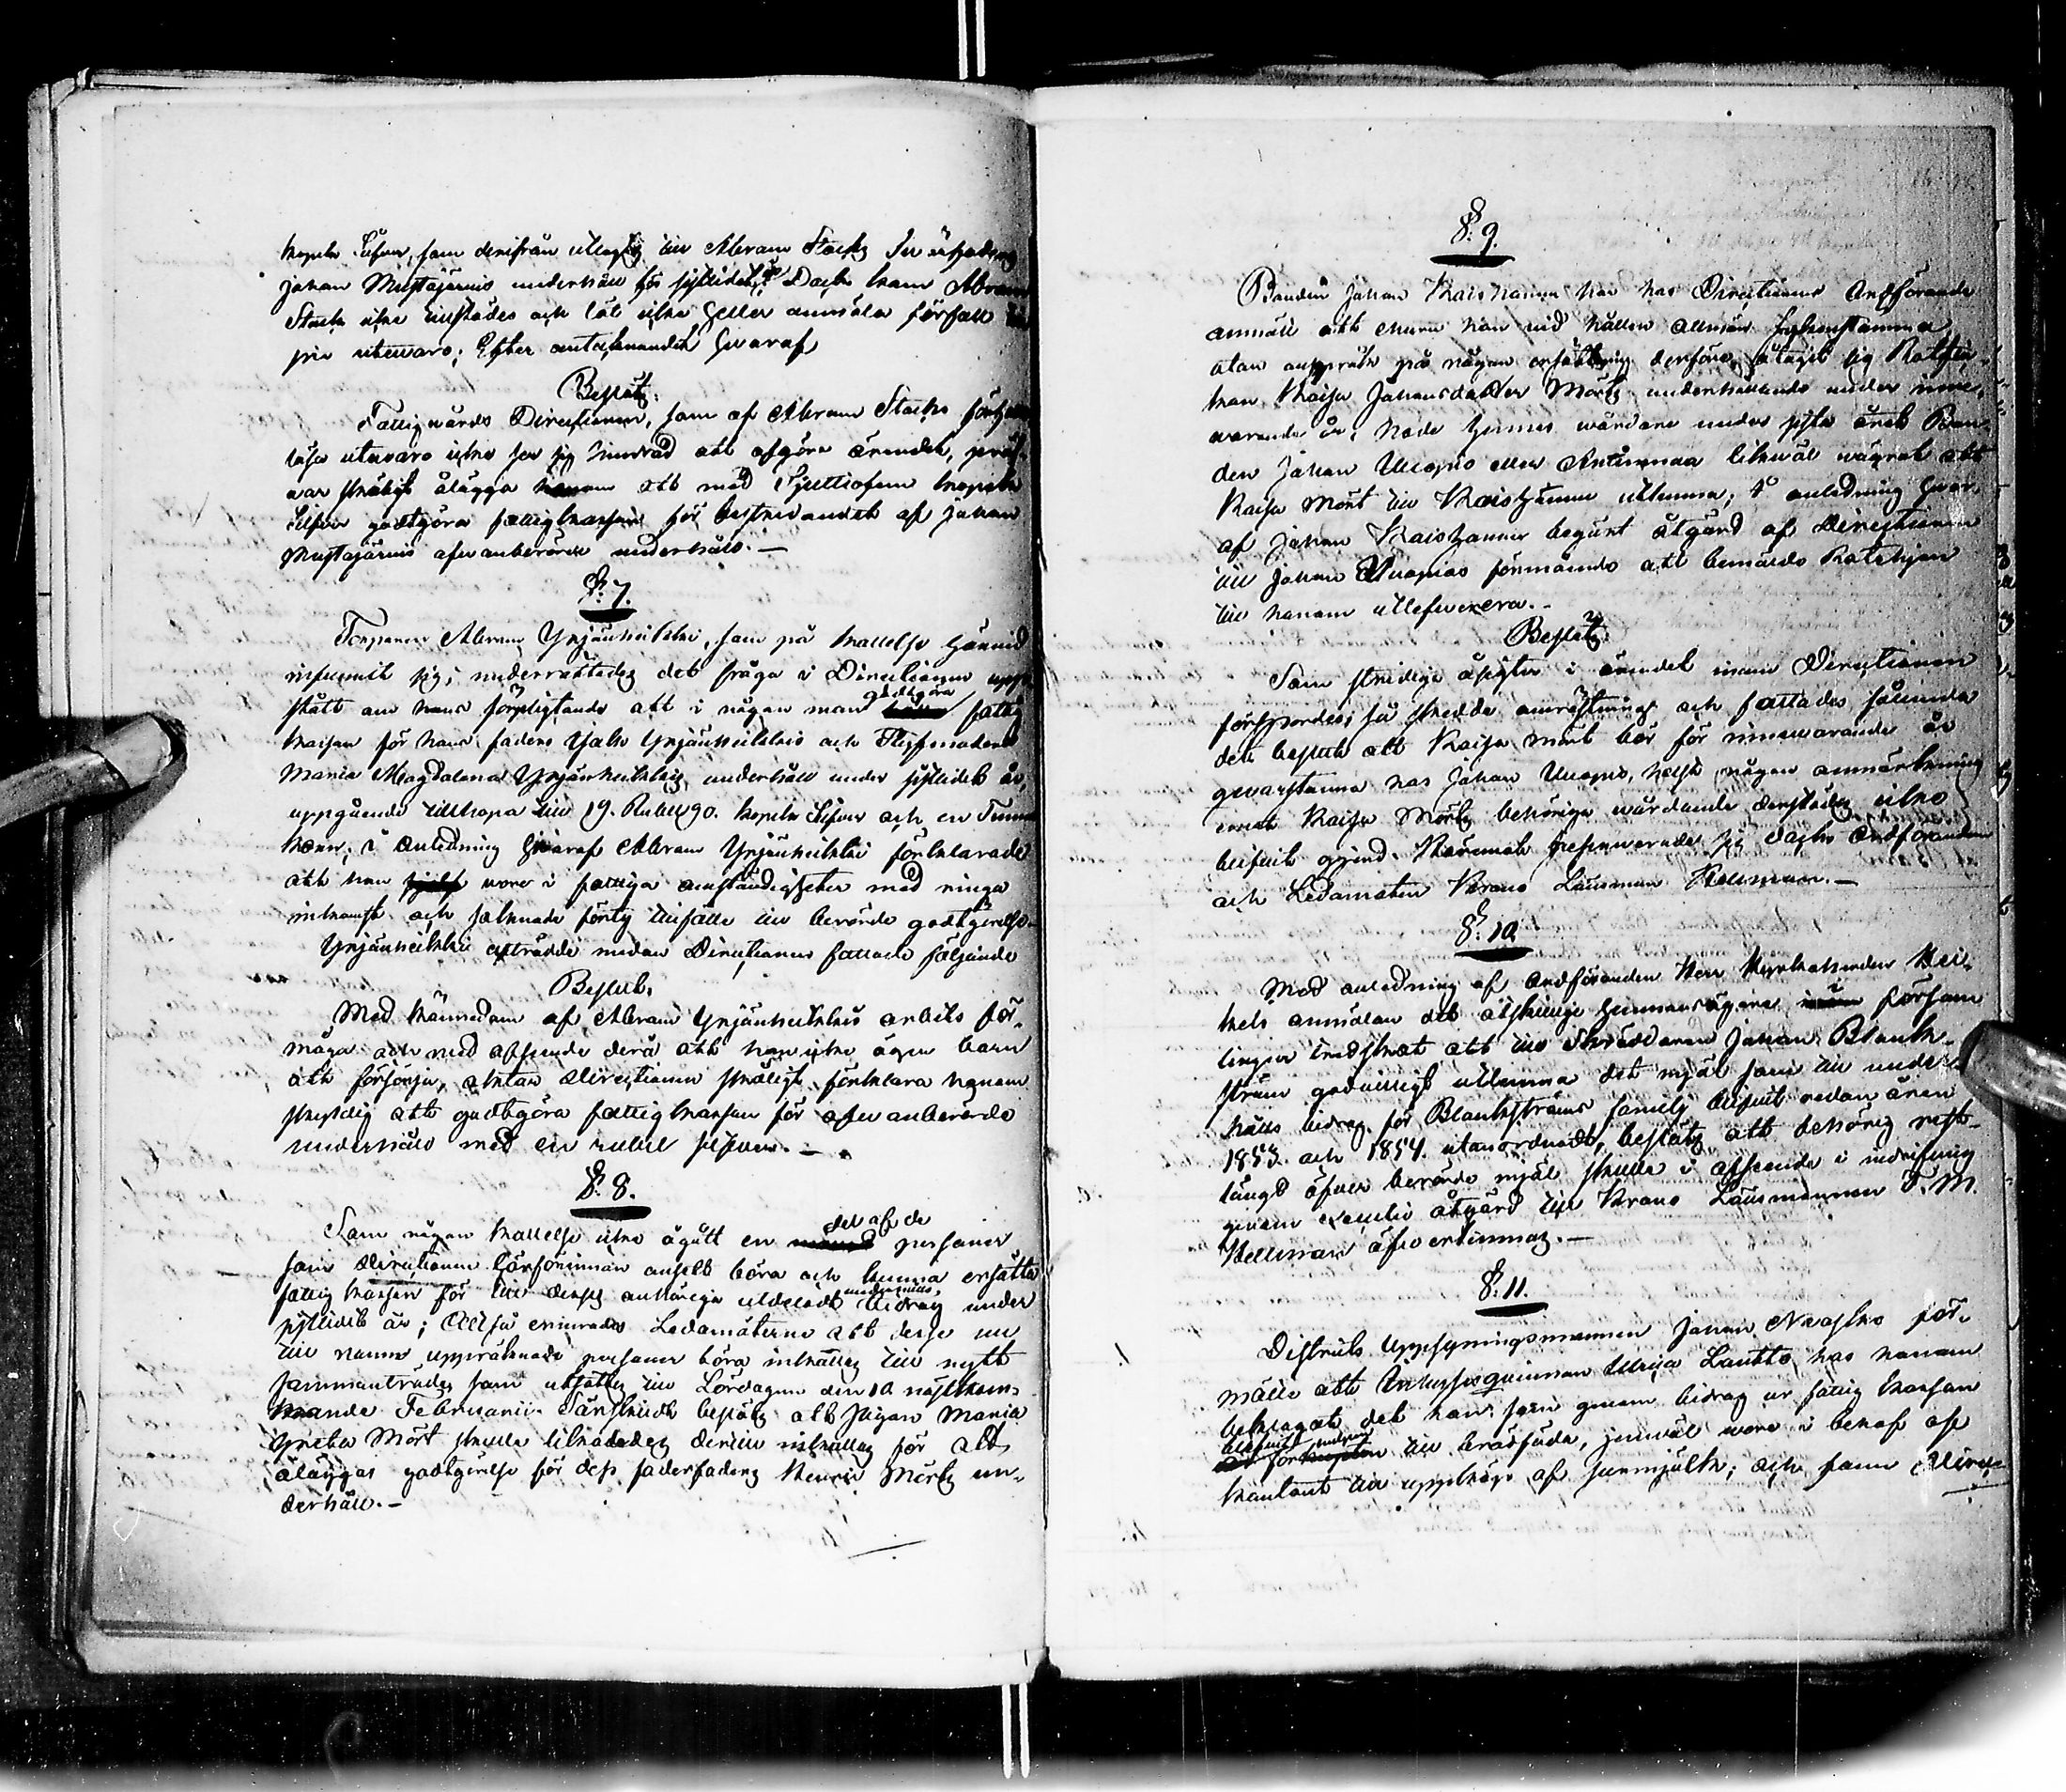 kopek Silfver, som derifrån utlagts till Abram Stacks In
Johan Mustajärvis underhåll för sistlidet år. Dock kom Abram
Stack icke tillstädes och lät icke heller anmäla förfall till
sin utevaro; Efter antecknandet hvaraf
Beslöts:
Fattigvårds Directionen, som af Abram Stacks förfallo-
lösa utevaro icke ser sig hindrad att afgöra ärendet, pröf-
var skäligt ålägga honom att med Sjuttiofem kopek
Silfver godtgöra fattigkassan för bestridandet af Johan
Mustajärvis ofvanberörde underhåll. —
§. 7.
Torparen Abram Yrjänheikki, som på kallelse härvid
infunnit sig, underrättades det fråga i Directionen upp-
stått om hans förpligtande att i någon mon godtgöra fattig
kassan för hans faders Jakob Yrjänheikkis och Styfmoders
Maria Magdalena Yrjänheikkis underhåll under sistlidet år,
uppgående tillhopa till 19. Rubel 90. kopek Silfver och en Tunna
Korn; i anledning hvaraf Abram Yrjänheikki förklarade
att han sjelf vore i fattiga omständigheter med ringa
inkomst och saknade förty tillfälle till berörde godtgörelse.
Yrjänheikki afträdde medan Directionen fattade följande
Beslut.
Med kännedom af Abram Yrjänheikkis arbets för-
måga och med afseende derå att han icke ägen barn
att försörja, aktar Directionen skäligt förklara honom
skyldig att godtgöra fattigkassan för ofvanberörde
underhåll med en rubel silfver. —
§. 8.
Som någon kallelse icke ågått en del af de personer
som Directionen härförinnan ansett böra och kunna ersätta
fattig kassan för till deras anhöriga utdeladt underhålls bidrag under
sistlidet år; Alltså erinrades Ledamöterne att desse nu
till namn uppräknade personer böra inkallas till nytt
sammanträde, som utsattes till Lördagen den 10 nästkom-
mande Februarii. Särskildt beslöts att Pigan Maria
Greta Mört skulle likaledes dertill inkallas för att
åläggas godtgörelse för dess faderfaders Henric Mörts un-
derhåll. —
§. 9.
Bonden Johan Kaishannu har hos Directionens Ordförande
anmält att ehuru han vid hållen allmän Sockenstämma
utan anspråk på någon ersättning derföre, åtagit sig Rotehjon
kan Kaisa Johansdotter Mörts underhållande under inne-
warande år, hade hennes wårdare under sista året Bon-
den Johan Uuopio eller Antinmaa likwäl wägrat att
Kaisa Mört till Kaishannu utlemna, i anledning hvar-
af Johan Kaishannu begärt åtgärd af Directionen
till Johan Uuopios förmående att bemälde Rotehjon
till honom utlefverera. —
Beslöts:
Som stridige åsigter i ärendet inom Directionen
försports; så skedde omröstning och fattades sålunda
det beslut att Kaisa Mört bör för innewarande år
qwarstanna hos Johan Uuopio, helst någon anmärkning
emot Kaisa Mörts behöriga wårdande derstädes icke
blifvit gjord. Häremot reserverade sig dock Ordföranden
och Ledamoten Krono Länsman Hellman. —
§. 10.
Med anledning af Ordföranden Herr Kyrkoherden Hei-
kels anmälan det åtskillige hemmansägare försam
lingen tredskat att till Skräddaren Johan Blank-
ström godwilligt utlemna det mjöl som till under-
hålls bidrag för Blankströms familj blifvit redan åren
1853. och 1854. utanordnadt, beslöts att behörig rest-
längd öfver berörde mjöl skulle i afseende å indrifning
genom executiv åtgärd till Krono Länsmannen F. M.
Hellman öfverlemnas. —
§. 11.
Districts Uppsyningsmannen Johan Niskos för-
mälte att Inhyses qwinnan Maria Lautto hos honom
beklagat det hon, som genom bidrag ur fattig kassan
blifvit till brödföda, jemväl vore i behof af
kontant till uppköp af surmjölk; och fann Direc-